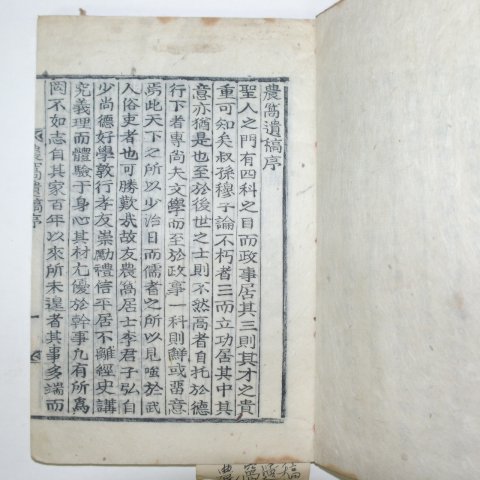 農窩遺稿序
聖人之門有四科之目而政事居其三則其才之貴
重可知矣叔孫穆子論不朽者三而立功居其中其
意亦猶是也至於後世之士則不然高者自托於德
行下者專尙夫文學而至於政事一科則鮮或畱意
焉此天下之所以少治日而儒者之所以見嗤於武
人俗吏者也可勝歎哉故友農窩居士李君子弘自
少尙德好學敦行孝友崇勵禮信平居不離經史講
究義理而體驗于身心其材尤優於幹事凡有所爲
罔不如志自其家百年以來所未遑者其事多端而
農窩遺稿序 一
農窩遺稿